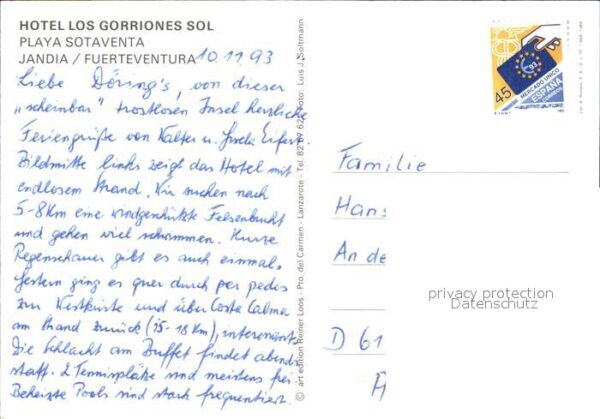 HOTEL LOS GORRIONES SOL
PLAYA SOTAVENTA
JANDIA / FUERTEVENTURA 10.11.93
Liebe Döring's, von dieser
"scheinbar" trostlosen Insel herzliche
Feriengrüße von Walter u. Gisela Eifert.
Bildmitte links zeigt das Hotel mit
endlosem Strand. Wir suchen nach
5-8 Km eine windgeschützte Felsenbucht
und gehen viel schwimmen. Kurze
Regenschauer gibt es auch einmal.
Gestern ging es quer durch per pedes
zur Westküste und über Costa Calma
am Strand zurück (15-18 Km) interessant.
Die Schlacht am Buffet findet abends
statt. 2 Tennisplätze sind meistens frei.
Beheizte Pools sind stark frequentiert.
© art edition Reiner Loos - Pto. del Carmen - Lanzarote - Tel. 82 67 62 Foto: Luis J. Soltmann
93
45
MERCADO UNICO
ESPAÑA
CORREOS
Familie
Hans
An de
privacy protection
Datenschutz
D 61